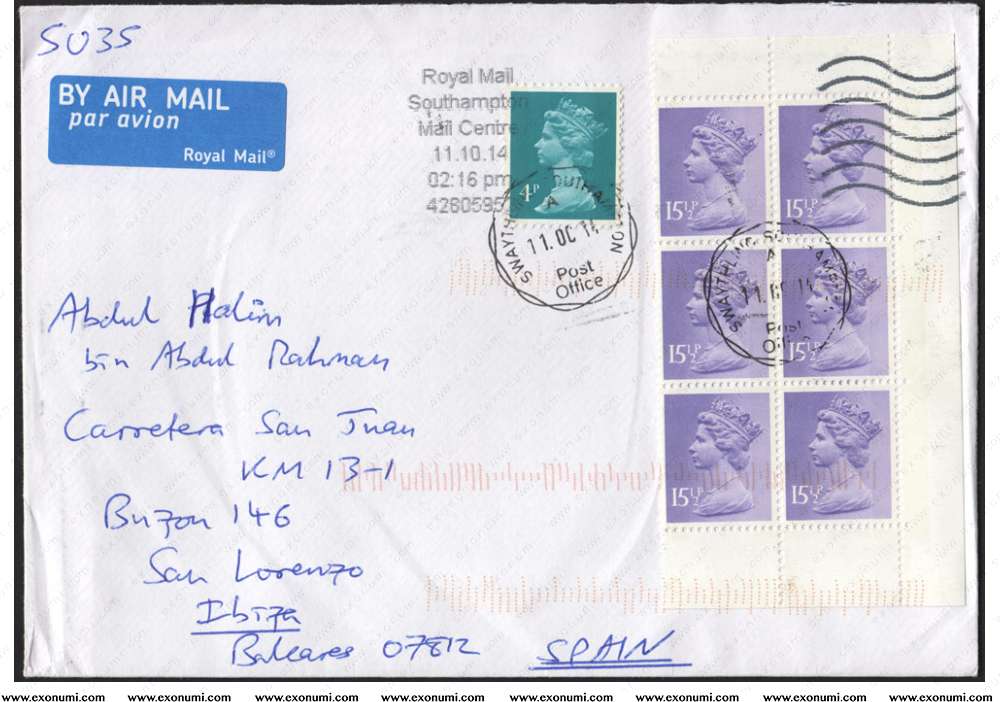 5035
BY AIR MAIL
par avion
Royal Mail®
Royal Mail
Southampton
Mail Centre
11.10.14
02:16 pm
4260595
4P
SWAYTHLING SOUTHAMPTON
A
11. OC 14
Post
Office
15½P
15½P
15½P
15½P
15½P
15½P
SWAYTHLING SOUTHAMPTON
A
11. OC 14
Post
Abdul Halim
bin Abdul Rahman
Carretera San Juan
KM 13-1
Buzon 146
San Lorenzo
Ibiza
Baleares 07812 SPAIN
www.exonumi.com www.exonumi.com www.exonumi.com www.exonumi.com www.exonumi.com www.exonumi.com www.exonumi.com www.exonumi.com